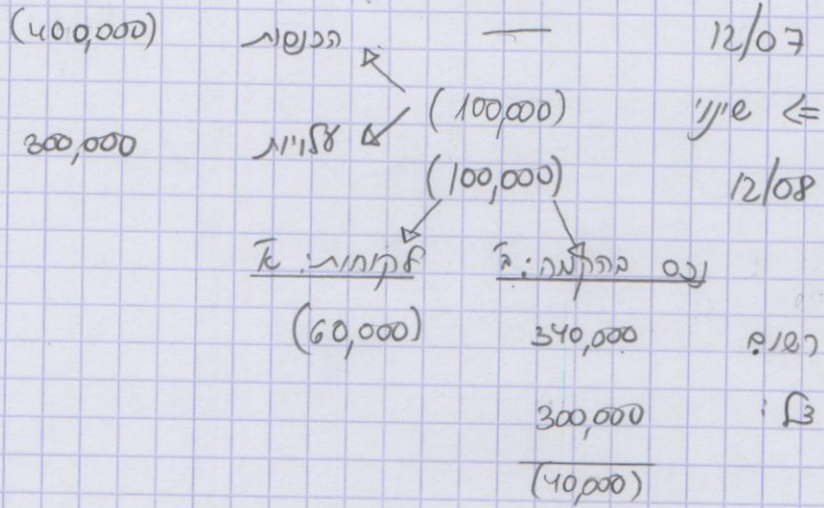 12/07 — הכנסות (400,000)
<= שינוי (100,000)
עלויות 300,000
12/08 (100,000)
נכס בהקמה: לקוחות:
רשום 340,000 (60,000)
צ"ל: 300,000
(40,000)